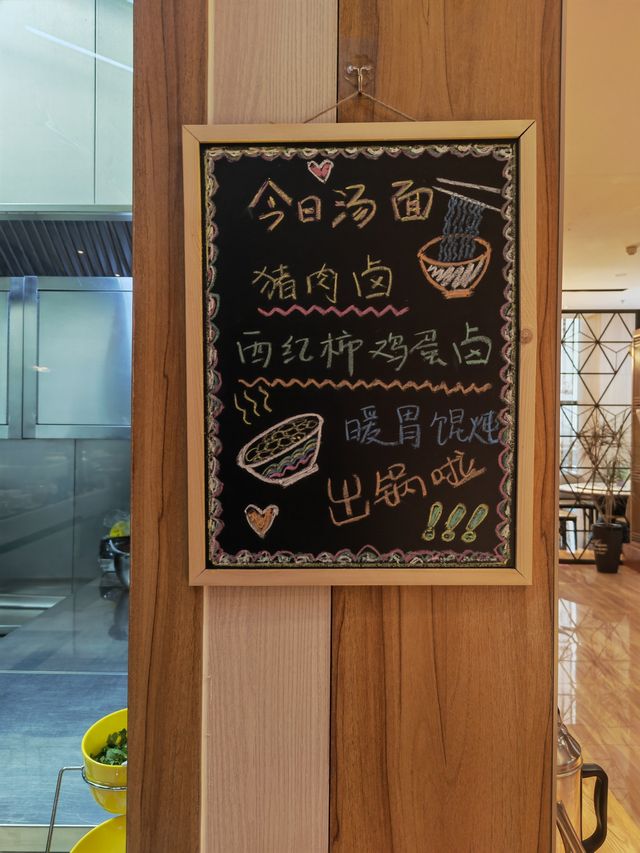 今日汤面
猪肉卤
西红柿鸡蛋卤
暖胃馄炖
出锅啦
!!!